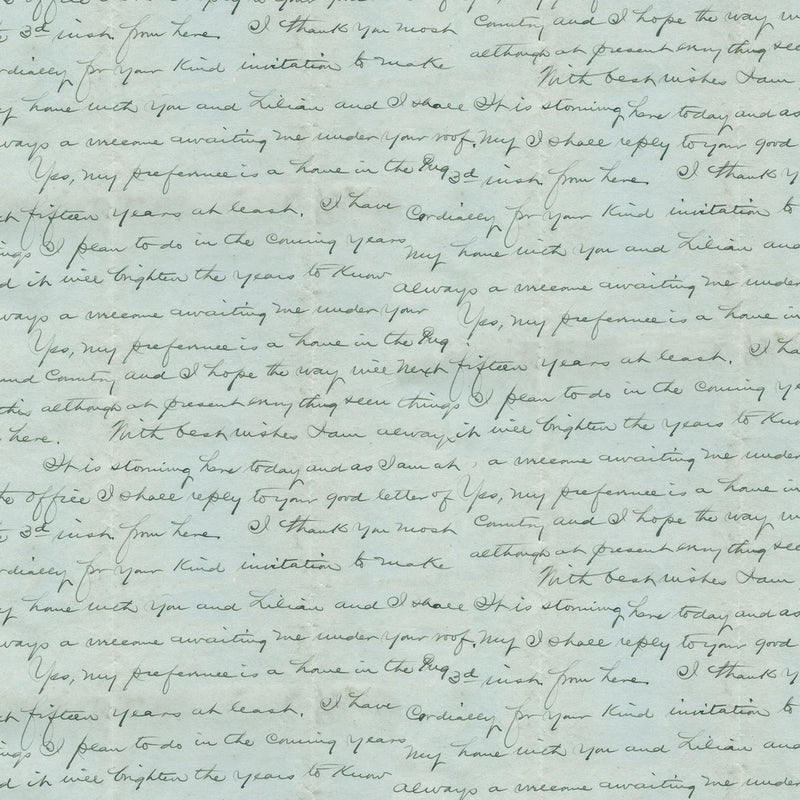 office I shall reply to your good letter of
3d inst. from here. I thank you most
Country and I hope the way w
although at present everything see
cordially for your kind invitation to make
With best wishes I am
my home with you and Lilian and I shall
It is storming here today and as
always a welcome awaiting me under your roof.
My I shall reply to your good
Yes, my preference is a home in the Pug
3d inst. from here. I thank y
next fifteen years at least. I have
Cordially for your kind invitation to
things I plan to do in the coming years
my home with you and Lilian and
and it will brighten the years to know
always a welcome awaiting me under
always a welcome awaiting me under your
Yes, my preference is a home in
Yes, my preference is a home in the Pug
Sound Country and I hope the way will
next fifteen years at least. I ha
this although at present everything seem
things I plan to do in the coming ye
here. With best wishes I am always
it will brighten the years to know
It is storming here today and as I am at
a welcome awaiting me under
the office I shall reply to your good letter of
Yes, my preference is a home in
3d inst. from here. I thank you most
Country and I hope the way w
although at present everything see
cordially for your kind invitation to make
With best wishes I am
my home with you and Lilian and I shall
It is storming here today and as
always a welcome awaiting me under your roof.
My I shall reply to your good
Yes, my preference is a home in the Pug
3d inst. from here. I thank y
next fifteen years at least. I have
Cordially for your kind invitation to
things I plan to do in the coming years
my home with you and Lilian and
and it will brighten the years to know
always a welcome awaiting me under